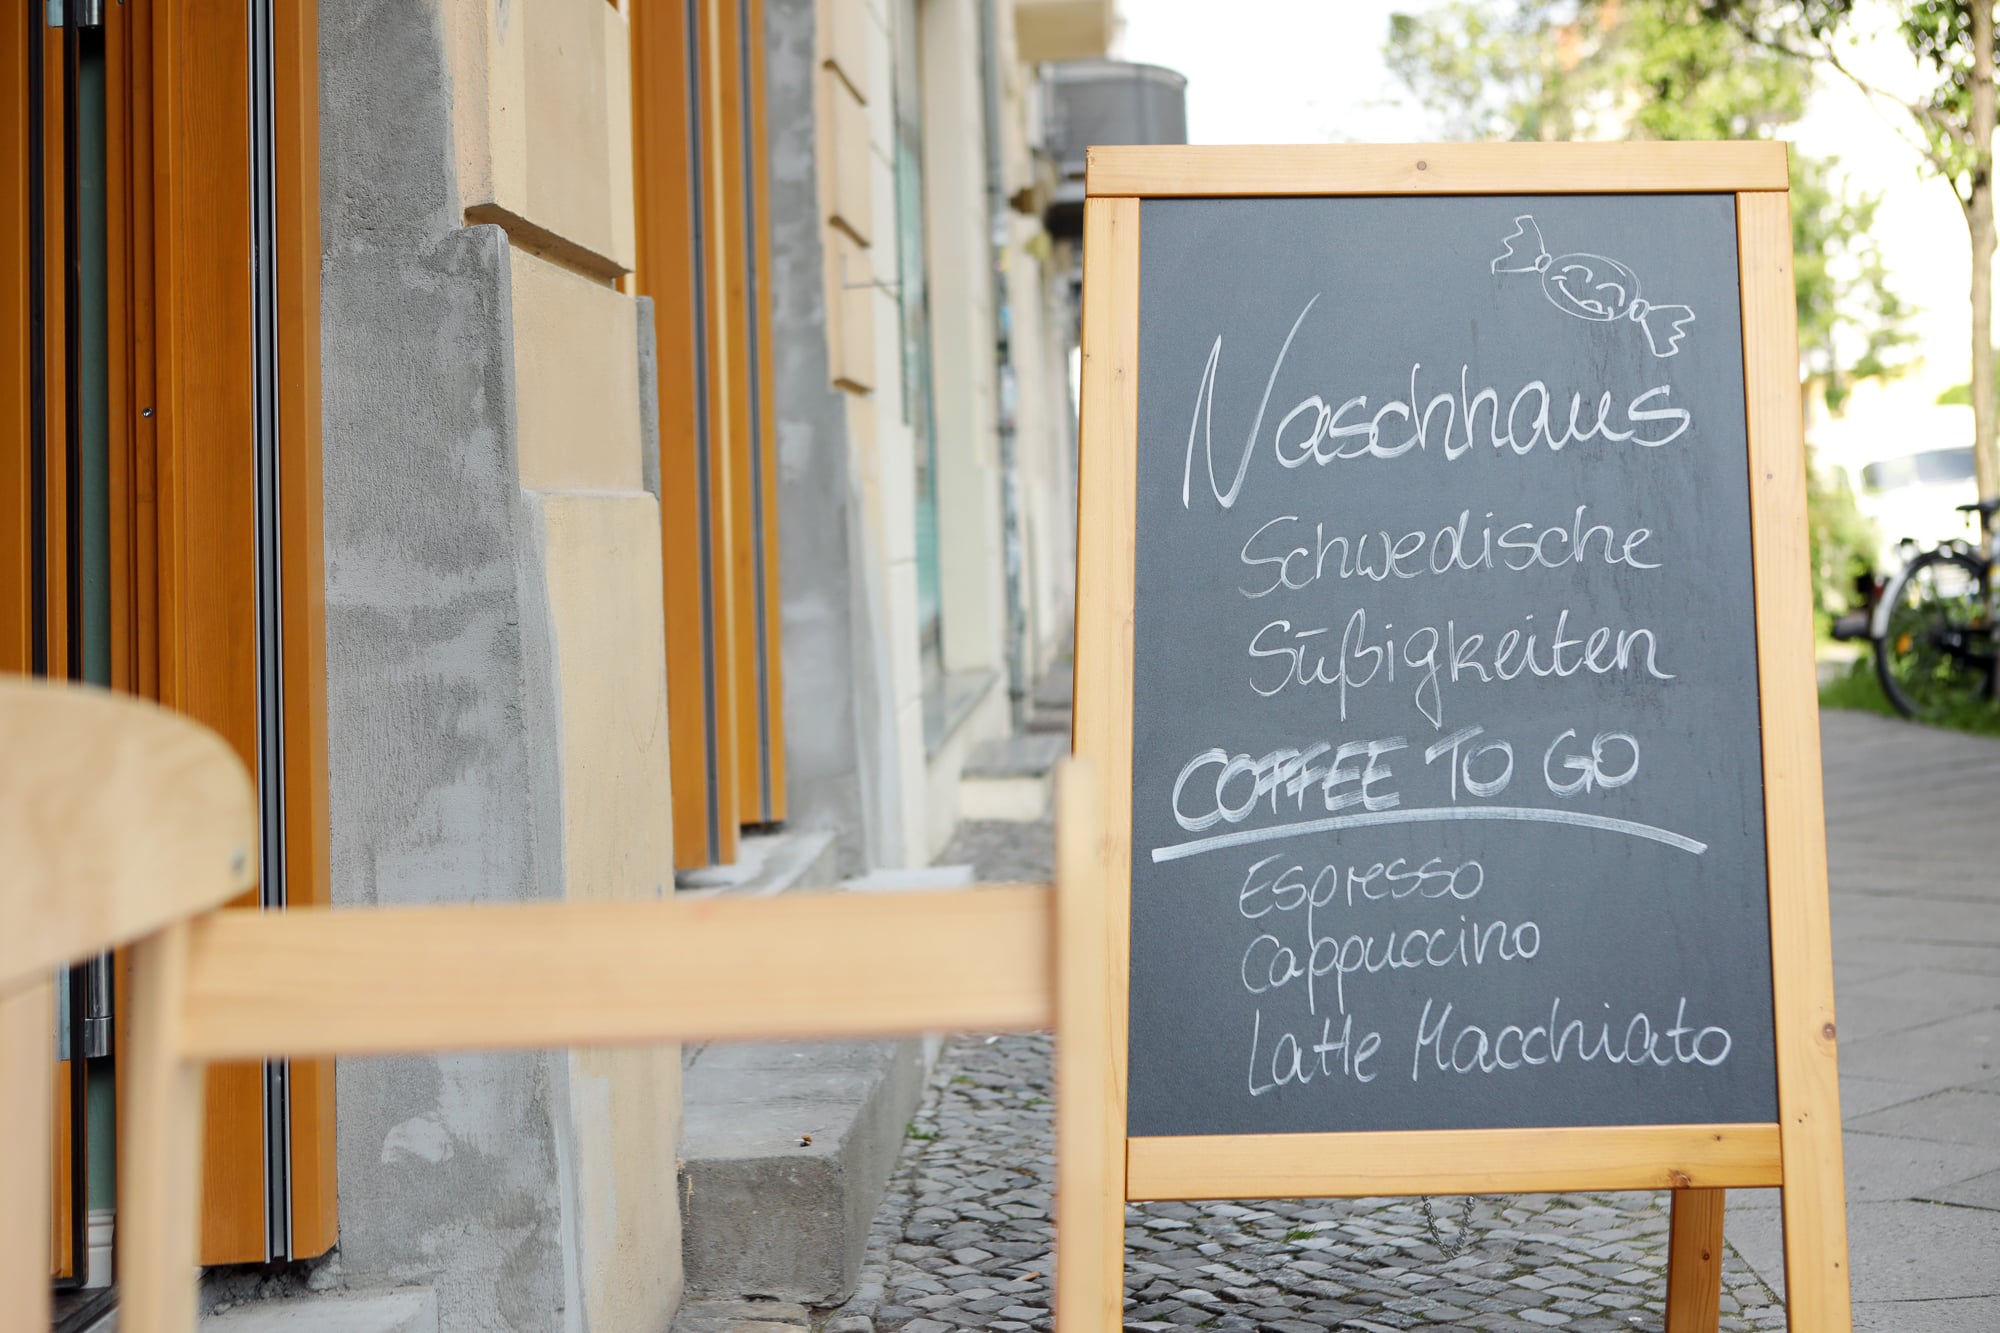 Naschhaus
Schwedische
Süßigkeiten
COFFEE TO GO
Espresso
Cappuccino
Latte Macchiato